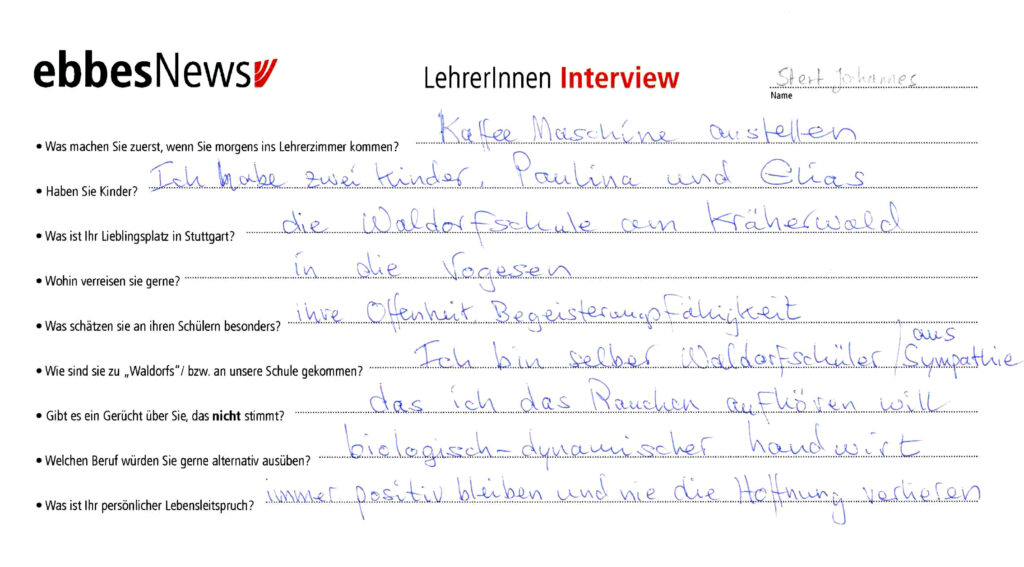 ebbesNews
LehrerInnen Interview
Stert Johannes
Name
• Was machen Sie zuerst, wenn Sie morgens ins Lehrerzimmer kommen? Kaffee Maschine anstellen
• Haben Sie Kinder? Ich habe zwei Kinder, Paulina und Elias
• Was ist Ihr Lieblingsplatz in Stuttgart? die Waldorfschule am Kräherwald
• Wohin verreisen sie gerne? in die Vogesen
• Was schätzen sie an ihren Schülern besonders? ihre Offenheit, Begeisterungsfähigkeit
• Wie sind sie zu „Waldorfs“/ bzw. an unsere Schule gekommen? Ich bin selber Waldorfschüler / aus Sympathie
• Gibt es ein Gerücht über Sie, das nicht stimmt? das ich das Rauchen aufhören will
• Welchen Beruf würden Sie gerne alternativ ausüben? biologisch-dynamischer handwirt
• Was ist Ihr persönlicher Lebensleitspruch? immer positiv bleiben und nie die Hoffnung verlieren